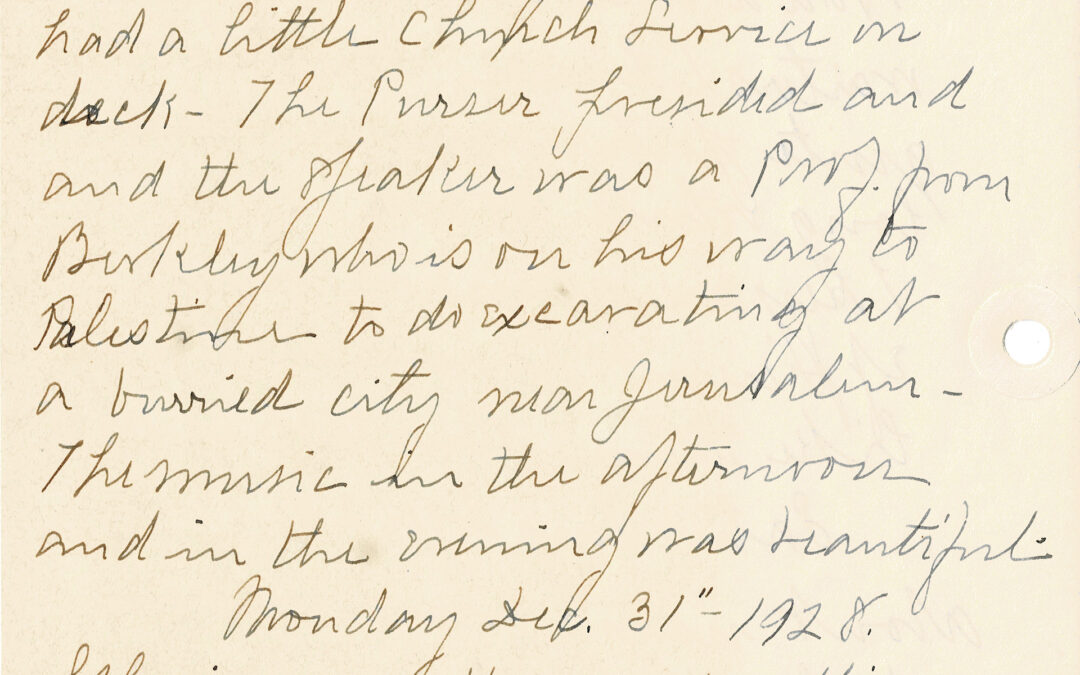 had a little Church Service on
deck - The Purser presided and
and the speaker was a Prof. from
Berkley who is on his way to
Palestine to do excavating at
a burried city near Jerusalem -
The music in the afternoon
and in the evening was beautiful.
Monday Dec. 31" - 1928.